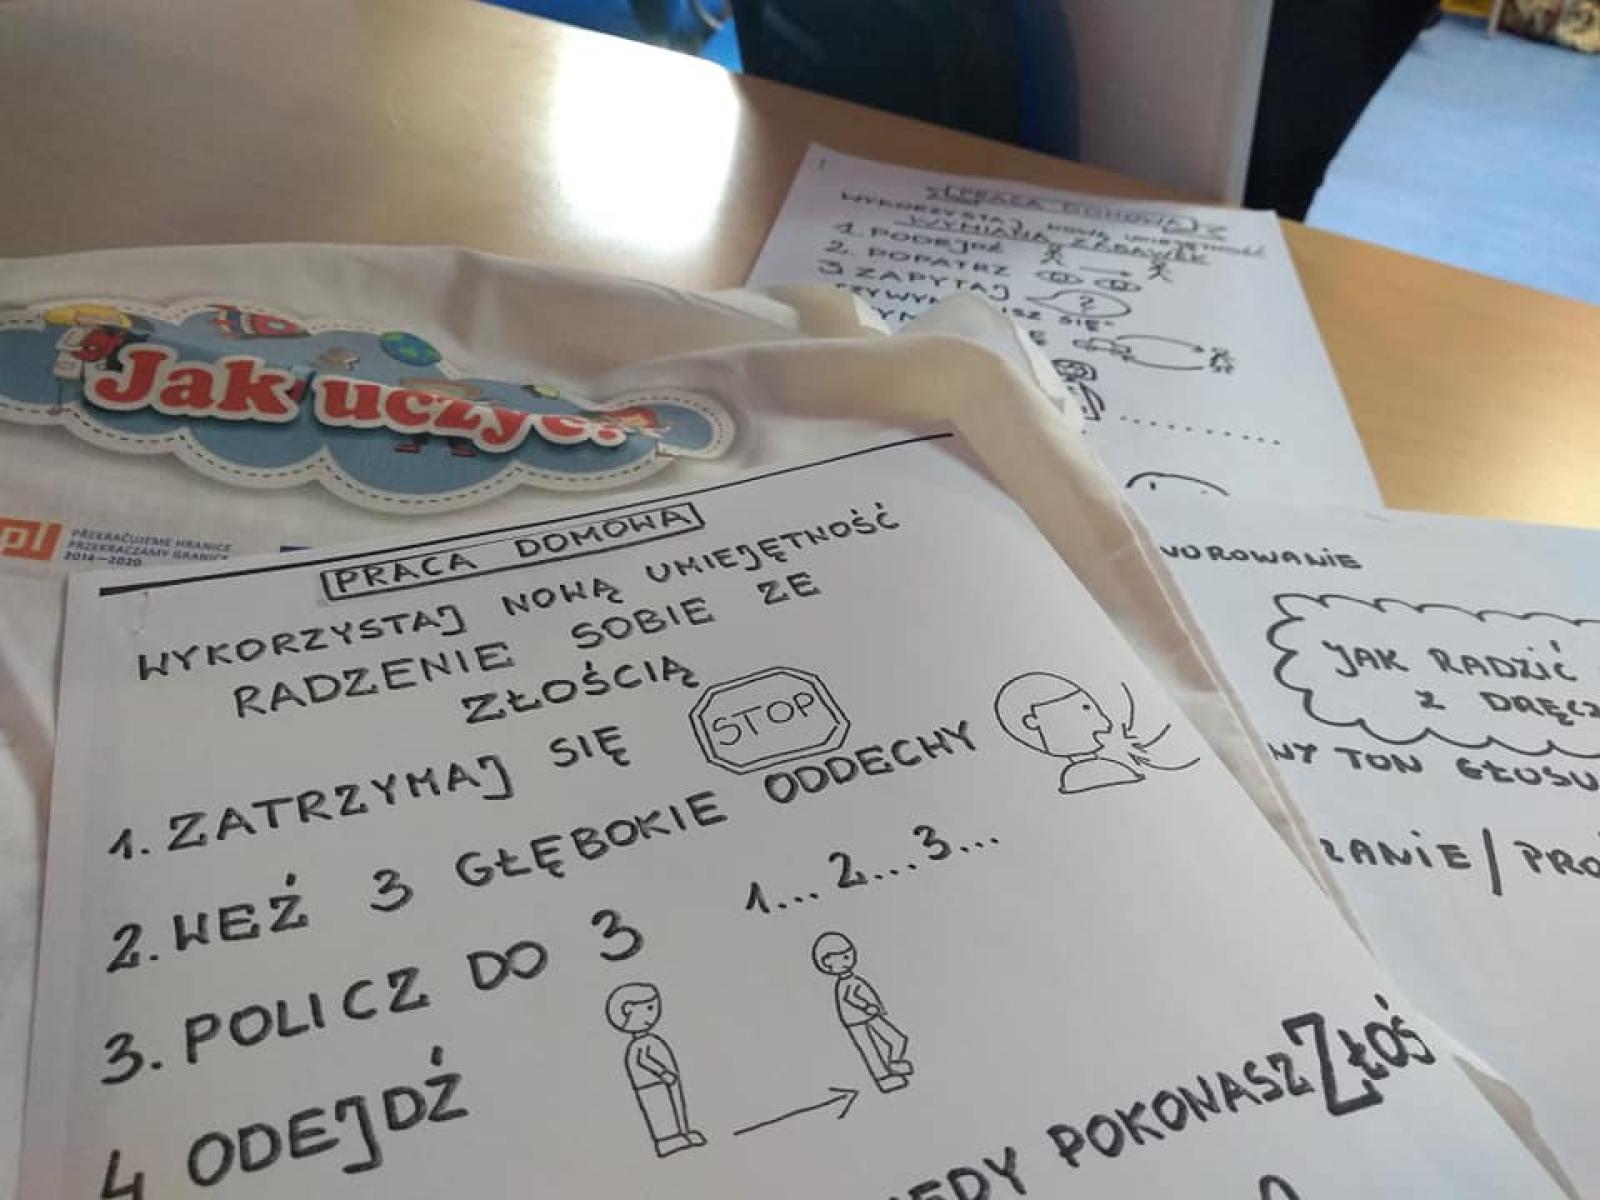 PRACA DOMOWA
WYKORZYSTAJ NOWĄ UMIEJĘTNOŚĆ
WYMIANA ZABAWEK
1. PODEJDŹ
2. POPATRZ
3 ZAPYTAJ
?
SIĘ"
Jak uczyć?
pl
PŘEKRAČUJEME HRANICE
PRZEKRACZAMY GRANICE
2014—2020
PRACA DOMOWA
WYKORZYSTAJ NOWĄ UMIEJĘTNOŚĆ
RADZENIE SOBIE ZE
ZŁOŚCIĄ
1. ZATRZYMAJ SIĘ STOP
2. WEŹ 3 GŁĘBOKIE ODDECHY
3. POLICZ DO 3 1... 2... 3...
4 ODEJDŹ
POKONASZ ZŁOŚ
JAK RADZIĆ
Z
TON GŁOSU